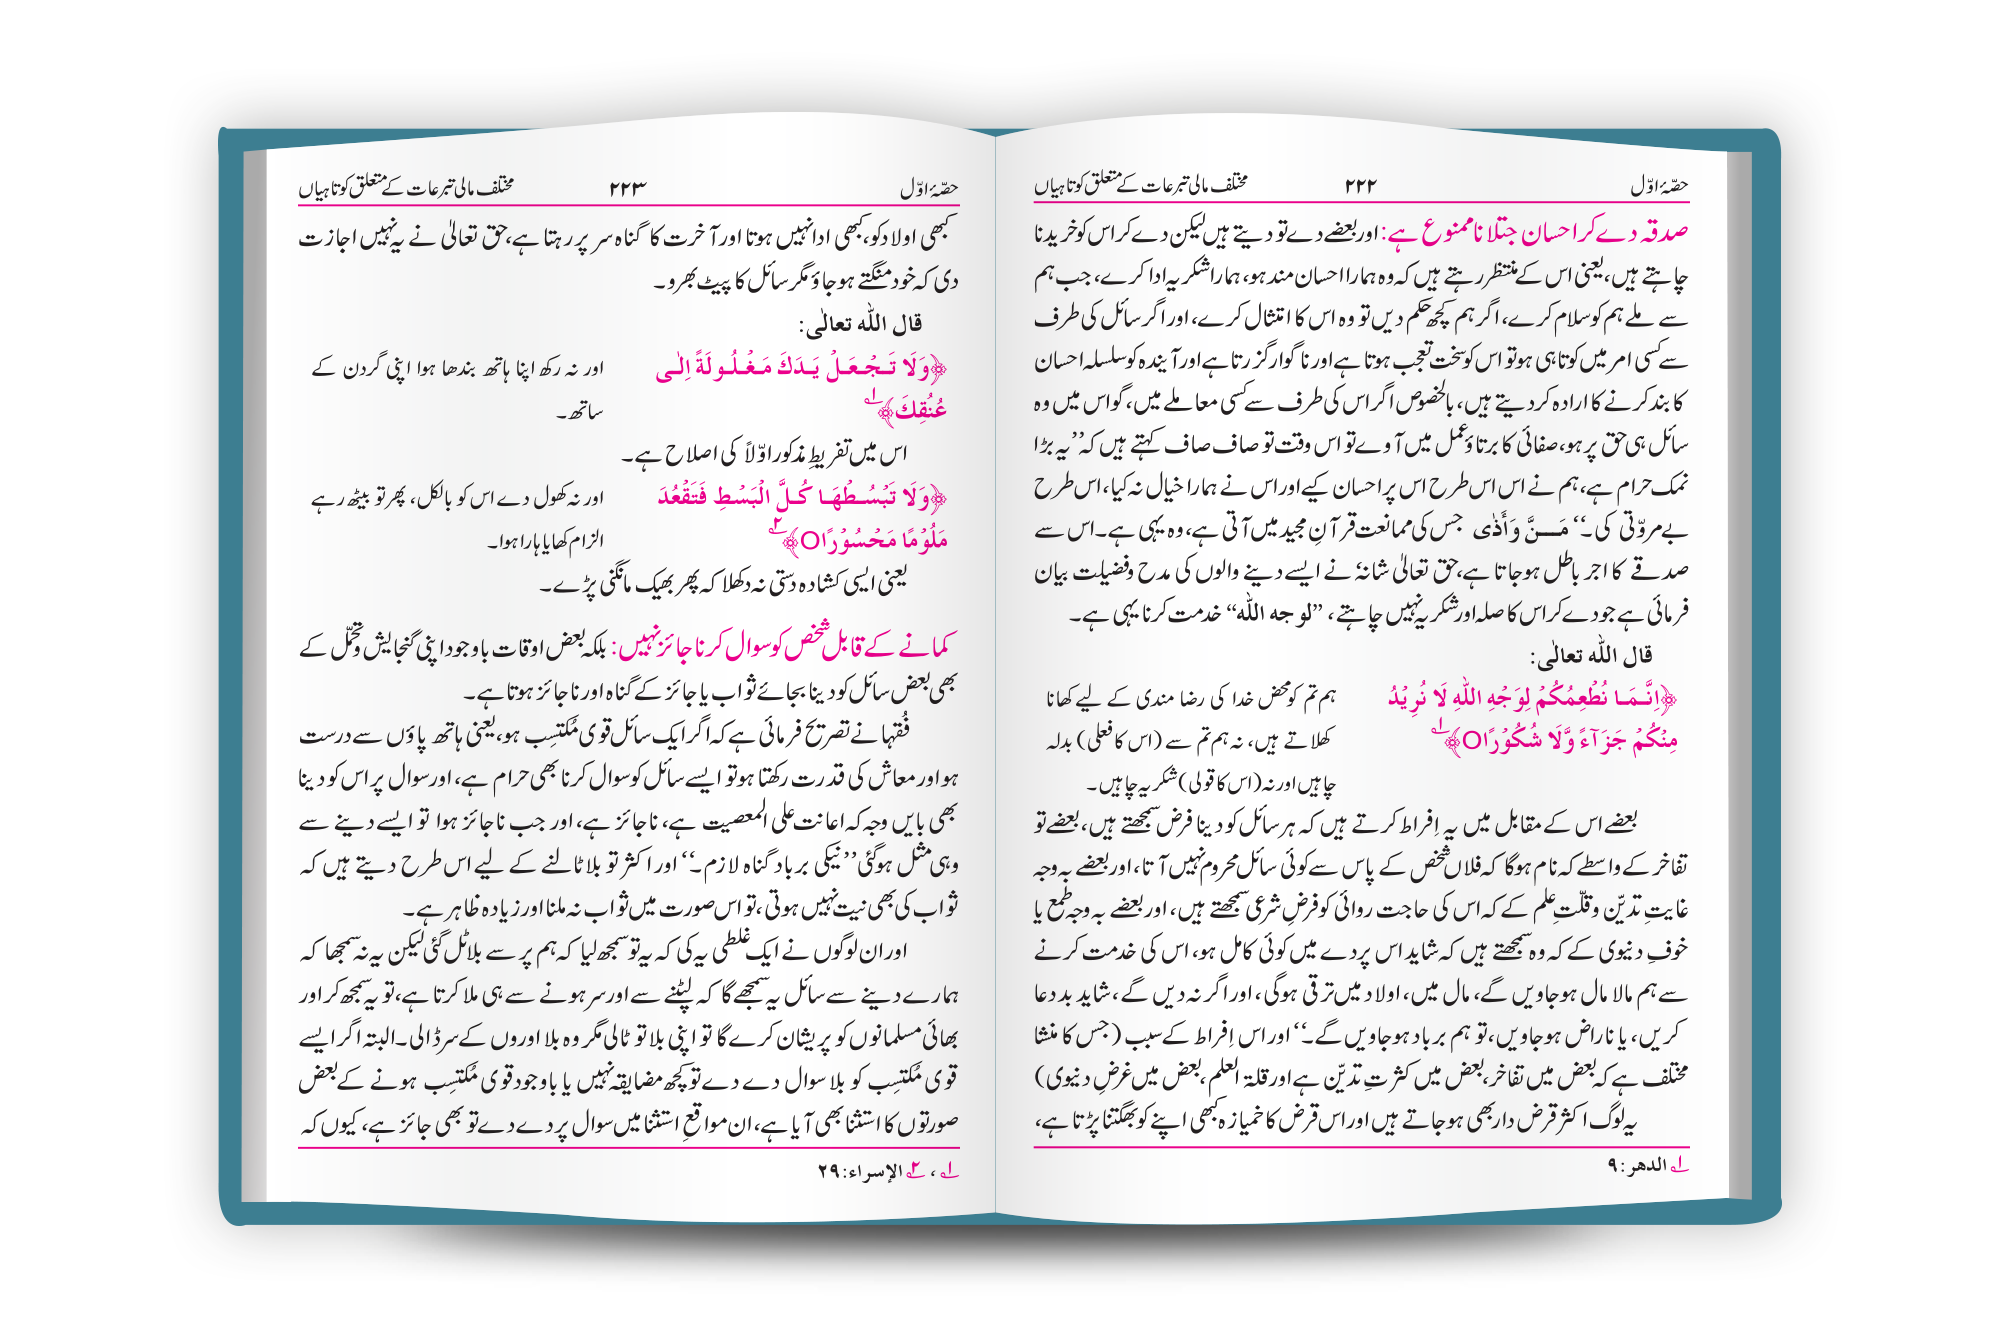 حصّۂ اوّل ۲۲۲ مختلف مالی تبرعات کے متعلق کوتاہیاں
صدقہ دے کر احسان جتلانا ممنوع ہے: اور بعضے دے تو دیتے ہیں لیکن دے کر اس کو خریدنا
چاہتے ہیں، یعنی اس کے منتظر رہتے ہیں کہ وہ ہمارا احسان مند ہو، ہمارا شکریہ ادا کرے، جب ہم
سے ملے ہم کو سلام کرے، اگر ہم کچھ حکم دیں تو وہ اس کا امتثال کرے، اور اگر سائل کی طرف
سے کسی امر میں کوتاہی ہو تو اس کو سخت تعجب ہوتا ہے اور ناگوار گزرتا ہے اور آیندہ کو سلسلہ احسان
کا بند کرنے کا ارادہ کردیتے ہیں، بالخصوص اگر اس کی طرف سے کسی معاملے میں، گو اس میں وہ
سائل ہی حق پر ہو، صفائی کا برتاؤ عمل میں آوے تو اس وقت تو صاف صاف کہتے ہیں کہ ’’یہ بڑا
نمک حرام ہے، ہم نے اس اس طرح اس پر احسان کیے اور اس نے ہمارا خیال نہ کیا، اس طرح
بے مروّتی کی۔‘‘ مَــنَّ وَأَذٰی جس کی ممانعت قرآنِ مجید میں آتی ہے، وہ یہی ہے۔ اس سے
صدقے کا اجر باطل ہوجاتا ہے، حق تعالیٰ شانہٗ نے ایسے دینے والوں کی مدح و فضیلت بیان
فرمائی ہے جو دے کر اس کا صلہ اور شکریہ نہیں چاہتے، ’’لوجه الله‘‘ خدمت کرنا یہی ہے۔
قال اللّٰه تعالٰی:
﴿اِنَّـمَـا نُطْعِمُكُمْ لِوَجْهِ اللّٰهِ لَا نُرِيْدُ ہم تم کو محض خدا کی رضا مندی کے لیے کھانا
مِنْكُمْ جَزَآءً وَّلَا شُكُوْرًاO﴾ ۱؎ کھلاتے ہیں، نہ ہم تم سے (اس کا فعلی) بدلہ
چاہیں اور نہ (اس کا قولی) شکریہ چاہیں۔
بعضے اس کے مقابل میں یہ اِفراط کرتے ہیں کہ ہر سائل کو دینا فرض سمجھتے ہیں، بعضے تو
تفاخر کے واسطے کہ نام ہوگا کہ فلاں شخص کے پاس سے کوئی سائل محروم نہیں آتا، اور بعضے بہ وجہ
غایتِ تدیّن و قلّتِ علم کے کہ اس کی حاجت روائی کو فرضِ شرعی سمجھتے ہیں، اور بعضے بہ وجہ طمع یا
خوفِ دنیوی کے کہ وہ سمجھتے ہیں کہ شاید اس پردے میں کوئی کامل ہو، اس کی خدمت کرنے
سے ہم مالا مال ہوجاویں گے، مال میں، اولاد میں ترقی ہوگی، اور اگر نہ دیں گے، شاید بد دعا
کریں، یا ناراض ہوجاویں، تو ہم برباد ہوجاویں گے۔‘‘ اور اس اِفراط کے سبب (جس کا منشا
مختلف ہے کہ بعض میں تفاخر، بعض میں کثرتِ تدیّن ہے اور قلۃ العلم، بعض میں غرضِ دنیوی)
یہ لوگ اکثر قرض دار بھی ہوجاتے ہیں اور اس قرض کا خمیازہ کبھی اپنے کو بھگتنا پڑتا ہے،
۱؎ الدھر: ۹
حصّۂ اوّل ۲۲۳ مختلف مالی تبرعات کے متعلق کوتاہیاں
کبھی اولاد کو، کبھی ادا نہیں ہوتا اور آخرت کا گناہ سر پر رہتا ہے، حق تعالیٰ نے یہ نہیں اجازت
دی کہ خود منگتے ہوجاؤ مگر سائل کا پیٹ بھرو۔
قال اللّٰه تعالٰی:
﴿وَلَا تَـجْـعَـلْ يَـدَكَ مَـغْـلُـولَةً اِلٰـى اور نہ رکھ اپنا ہاتھ بندھا ہوا اپنی گردن کے
عُنُقِكَ﴾ ۱؎ ساتھ۔
اس میں تفریطِ مذکور اوّلاً کی اصلاح ہے۔
﴿وَلَا تَبْسُـطْهَـا كُـلَّ الْبَسْطِ فَتَقْعُدَ اور نہ کھول دے اس کو بالکل، پھر تو بیٹھ رہے
مَلُوْمًا مَحْسُوْرًاO﴾ ۲؎ الزام کھایا ہارا ہوا۔
یعنی ایسی کشادہ دستی نہ دکھلا کہ پھر بھیک مانگنی پڑے۔
کمانے کے قابل شخص کو سوال کرنا جائز نہیں: بلکہ بعض اوقات باوجود اپنی گنجایش و تحمّل کے
بھی بعض سائل کو دینا بجائے ثواب یا جائز کے گناہ اور ناجائز ہوتا ہے۔
فُقہا نے تصریح فرمائی ہے کہ اگر ایک سائل قوی مُکتسِب ہو، یعنی ہاتھ پاؤں سے درست
ہو اور معاش کی قدرت رکھتا ہو تو ایسے سائل کو سوال کرنا بھی حرام ہے، اور سوال پر اس کو دینا
بھی بایں وجہ کہ اعانت علی المعصیت ہے، ناجائز ہے، اور جب ناجائز ہوا تو ایسے دینے سے
وہی مثل ہوگئی ’’نیکی برباد گناہ لازم۔‘‘ اور اکثر تو بلا ٹالنے کے لیے اس طرح دیتے ہیں کہ
ثواب کی بھی نیت نہیں ہوتی، تو اس صورت میں ثواب نہ ملنا اور زیادہ ظاہر ہے۔
اور ان لوگوں نے ایک غلطی یہ کی کہ یہ تو سمجھ لیا کہ ہم پر سے بلا ٹل گئی لیکن یہ نہ سمجھا کہ
ہمارے دینے سے سائل یہ سمجھے گا کہ لپٹنے سے اور سر ہونے سے ہی ملا کرتا ہے، تو یہ سمجھ کر اور
بھائی مسلمانوں کو پریشان کرے گا تو اپنی بلا تو ٹالی مگر وہ بلا اوروں کے سر ڈالی۔ البتہ اگر ایسے
قوی مُکتسِب کو بلا سوال دے دے تو کچھ مضایقہ نہیں یا باوجود قوی مُکتسِب ہونے کے بعض
صورتوں کا استثنا بھی آیا ہے، ان مواقعِ استثنا میں سوال پر دے دے تو بھی جائز ہے، کیوں کہ
۱؎، ۲؎ الإسراء: ۲۹